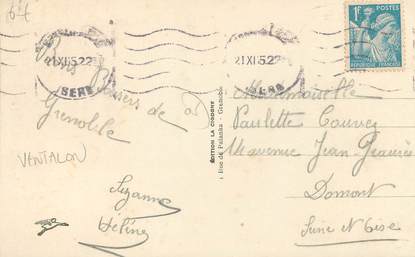 64
21 XI 15 22
ISERE
21 XI 15 22
ISERE
1F POSTES
REPUBLIQUE FRANÇAISE
Bons Baisers de
Grenoble
VENTALON
Suzanne
Hélène
EDITION LA CIGOGNE
1 Rue de Palanka - Grenoble
Mademoiselle
Paulette Couvez
avenue Jean-Jaurès
Domont
Seine et Oise